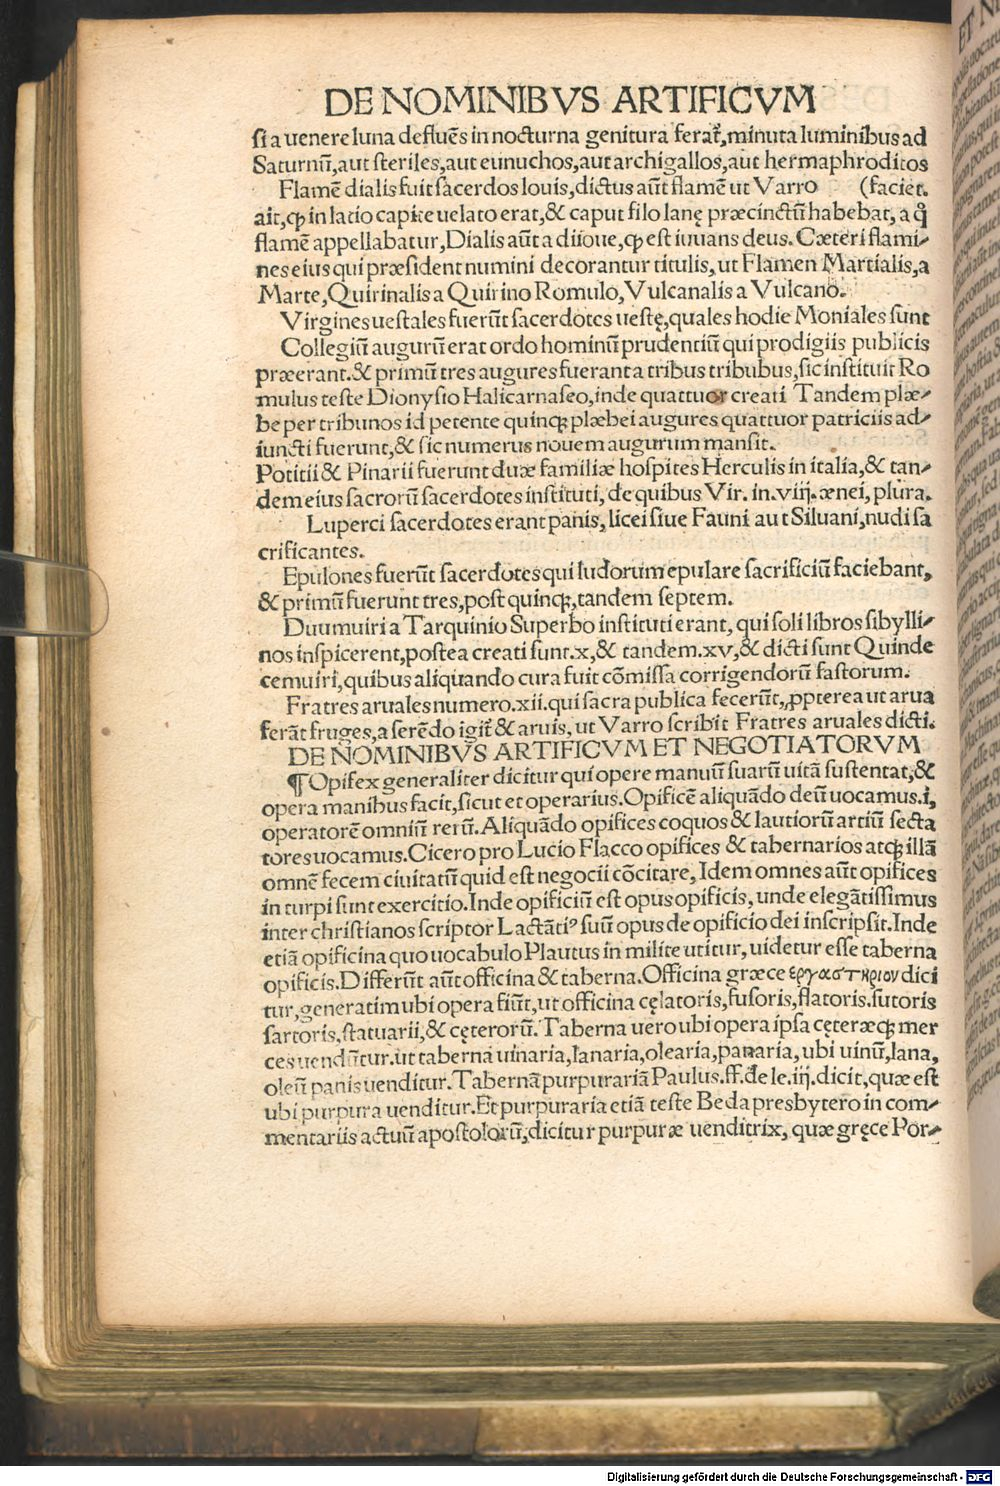 DE NOMINIBVS ARTIFICVM
si a uenere luna defluẽs in nocturna genitura ferat̃, minuta luminibus ad
Saturnũ, aut steriles, aut eunuchos, aut archigallos, aut hermaphroditos
Flamẽ dialis fuit sacerdos Iouis, dictus aũt flamẽ ut Varro (faciet.
ait, ꝙ in latio capite uelato erat, & caput filo lanę præcinctũ habebat, a q̊
flamẽ appellabatur, Dialis aũt a diioue, ꝙ est iuuans deus. Cæteri flami-
nes eius qui præsident numini decorantur titulis, ut Flamen Martialis, a
Marte, Quirinalis a Quirino Romulo, Vulcanalis a Vulcano.
Virgines uestales fuerũt sacerdotes uestę, quales hodie Moniales sunt
Collegiũ augurũ erat ordo hominũ prudentiũ qui prodigiis publicis
præerant. & primũ tres augures fuerant a tribus tribubus, sic instituit Ro
mulus teste Dionysio Halicarnaseo, inde quattuor creati Tandem plæ-
be per tribunos id petente quinqꝫ plæbei augures quattuor patriciis ad-
iuncti fuerunt, & sic numerus nouem augurum mansit.
Potitii & Pinarii fuerunt duæ familiæ hospites Herculis in italia, & tan-
dem eius sacrorũ sacerdotes instituti, de quibus Vir. in. viij. ænei, plura.
Luperci sacerdotes erant panis, licei siue Fauni aut Siluani, nudi sa
crificantes.
Epulones fuerũt sacerdotes qui ludorum epulare sacrificiũ faciebant,
& primũ fuerunt tres, post quinqꝫ, tandem septem.
Duumuiri a Tarquinio Superbo instituti erant, qui soli libros sibylli-
nos inspicerent, postea creati sunt. x, & tandem. xv, & dicti sunt Quinde
cemuiri, quibus aliquando cura fuit cõmissa corrigendorũ fastorum.
Fratres aruales numero. xii. qui sacra publica fecerũt, ꝓpterea ut arua
ferãt fruges, a ferẽdo igit̃ & aruis, ut Varro scribit Fratres aruales dicti.
DE NOMINIBVS ARTIFICVM ET NEGOTIATORVM
¶ Opifex generaliter dicitur qui opere manuũ suarũ uitã sustentat, &
opera manibus facit, sicut et operarius. Opificẽ aliquãdo deũ uocamus. i,
operatorẽ omniũ rerũ. Aliquãdo opifices coquos & lautiorũ artiũ secta
tores uocamus. Cicero pro Lucio Flacco opifices & tabernarios atqꝫ illã
omnẽ fecem ciuitatũ quid est negocii cõcitare, Idem omnes aũt opifices
in turpi sunt exercitio. Inde opificiũ est opus opificis, unde elegãtissimus
inter christianos scriptor Lactãtiꝰ suũ opus de opificio dei inscripsit. Inde
etiã opificina quo uocabulo Plautus in milite utitur, uidetur esse taberna
opificis. Differũt aũt officina & taberna. Officina græce εργαστηριον dici
tur, generatim ubi opera fiũt, ut officina cęlatoris, fusoris, flatoris. sutoris
sartoris, statuarii, & cęterorũ. Taberna uero ubi opera ipsa cęteræqꝫ mer
ces uendũtur. ut taberna uinaria, lanaria, olearia, panaria, ubi uinũ, lana,
oleũ panis uenditur. Tabernã purpurariã Paulus. ff. de le. iij. dicit, quæ est
ubi purpura uenditur. Et purpuraria etiã teste Beda presbytero in com-
mentariis actuũ apostolorũ, dicitur purpuræ uenditrix, quæ gręce Por-
Digitalisierung gefördert durch die Deutsche Forschungsgemeinschaft - DFG